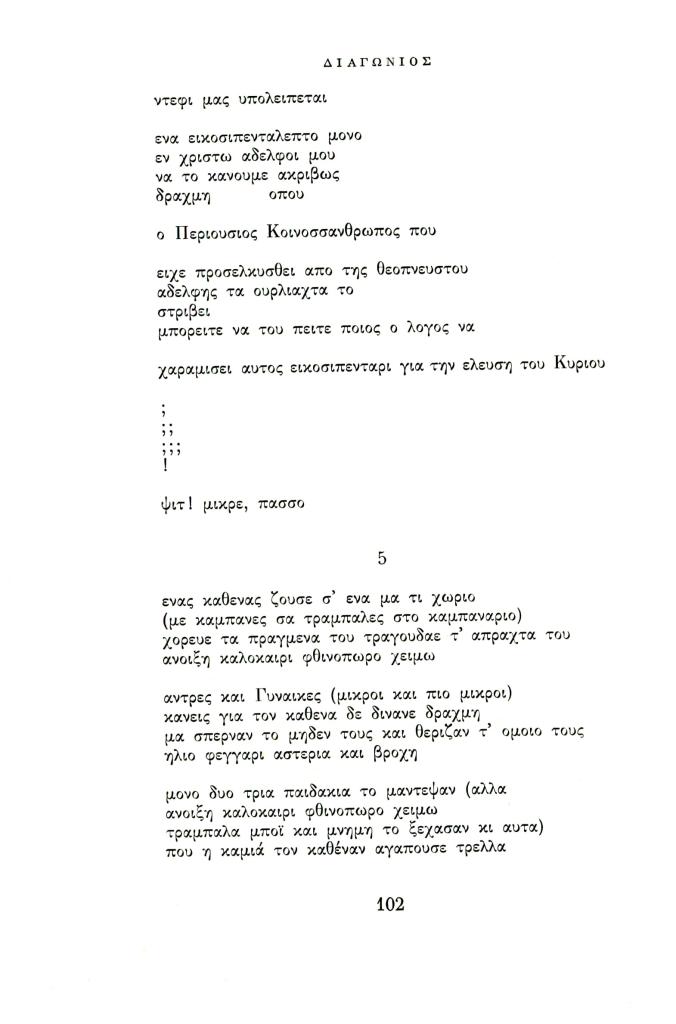 ΔΙΑΓΩΝΙΟΣ
ντεφι μας υπολειπεται
ενα εικοσιπενταλεπτο μονο
εν χριστω αδελφοι μου
να το κανουμε ακριβως
δραχμη οπου
ο Περιουσιος Κοινοσσανθρωπος που
ειχε προσελκυσθει απο της θεοπνευστου
αδελφης τα ουρλιαχτα το
στριβει
μπορειτε να του πειτε ποιος ο λογος να
χαραμισει αυτος εικοσιπενταρι για την ελευση του Κυριου
;
;;
;;;
!
ψιτ! μικρε, πασσο
5
ενας καθενας ζουσε σ' ενα μα τι χωριο
(με καμπανες σα τραμπαλες στο καμπαναριο)
χορευε τα πραγμενα του τραγουδαε τ' απραχτα του
ανοιξη καλοκαιρι φθινοπωρο χειμω
αντρες και Γυναικες (μικροι και πιο μικροι)
κανεις για τον καθενα δε δινανε δραχμη
μα σπερναν το μηδεν τους και θεριζαν τ' ομοιο τους
ηλιο φεγγαρι αστερια και βροχη
μονο δυο τρια παιδακια το μαντεψαν (αλλα
ανοιξη καλοκαιρι φθινοπωρο χειμω
τραμπαλα μποϊ και μνημη το ξεχασαν κι αυτα)
που η καμιά τον καθέναν αγαπουσε τρελλα
102